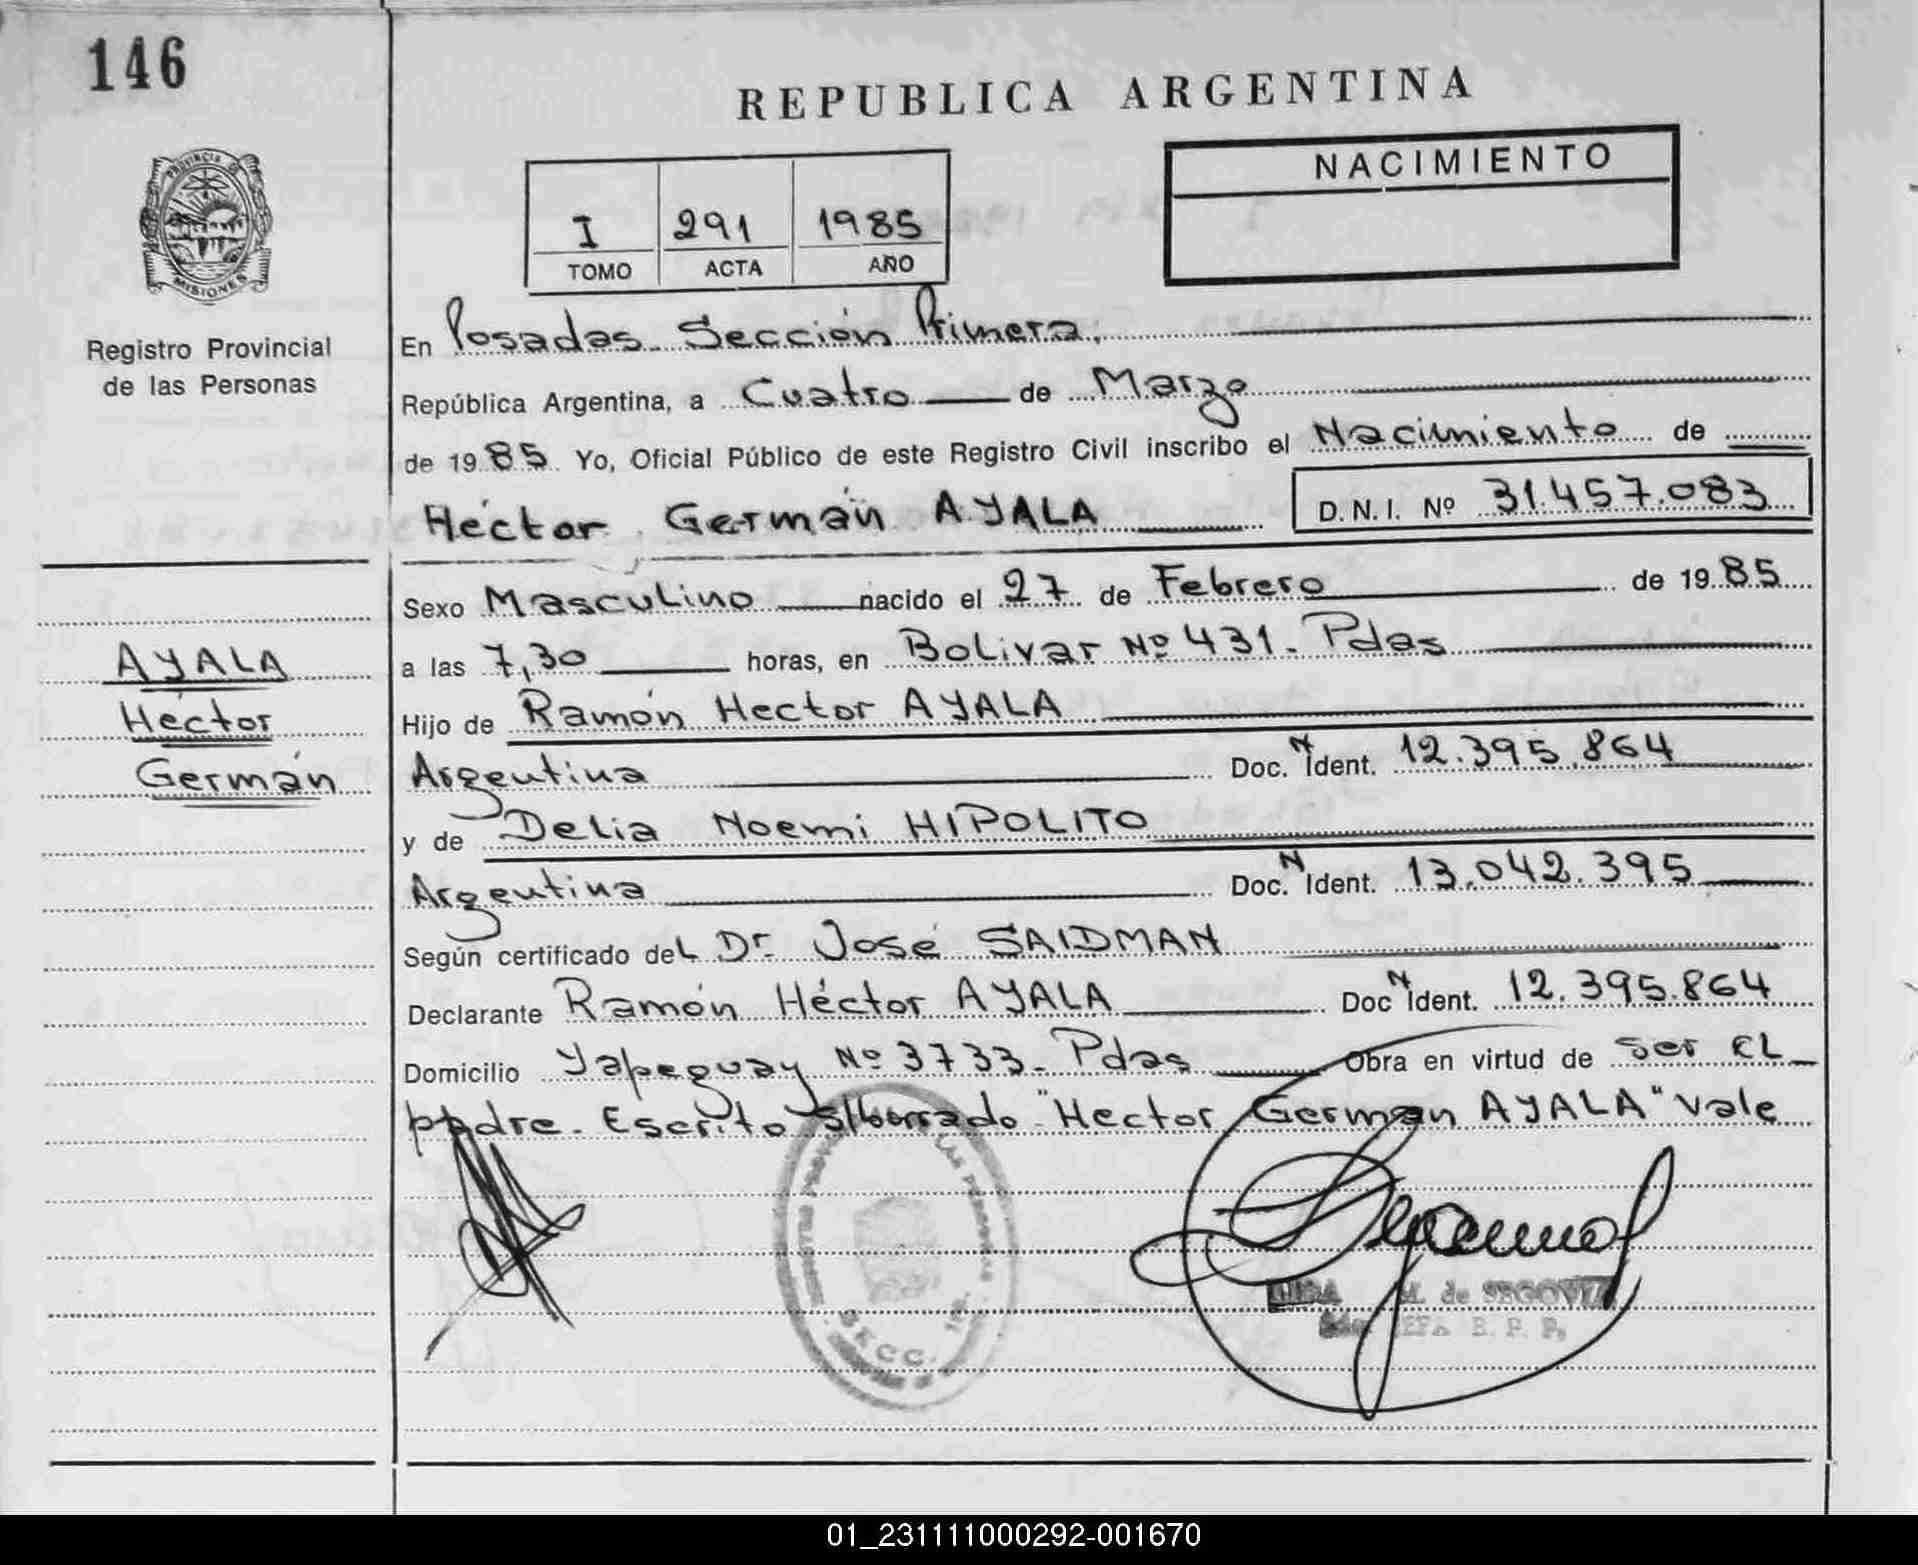 146
REPUBLICA ARGENTINA
NACIMIENTO
I 291 1985
TOMO ACTA AÑO
PROVINCIA DE
MISIONES
Registro Provincial
de las Personas
En Posadas Sección Primera,
República Argentina, a Cuatro de Marzo
de 1985 Yo, Oficial Público de este Registro Civil inscribo el Nacimiento de
Héctor Germán AYALA D.N.I. Nº 31.457.083
Sexo Masculino nacido el 27 de Febrero de 1985
a las 7,30 horas, en Bolivar Nº 431. Pdas
Hijo de Ramón Hector AYALA
Argentina Doc. N Ident. 12.395.864
y de Delia Noemi HIPOLITO
Argentina Doc. N Ident. 13.042.395
Según certificado del Dr. José SAIDMAN
Declarante Ramón Héctor AYALA Doc N Ident. 12.395.864
Domicilio Yapeguay Nº 3733. Pdas Obra en virtud de ser el
padre. Escrito s/borrado "Hector German AYALA" vale
AYALA
Héctor
Germán
LAS PERSONAS
SECC. 1ra.
M. de SEGOVIA
JEFA R. P. P.
01_231111000292-001670